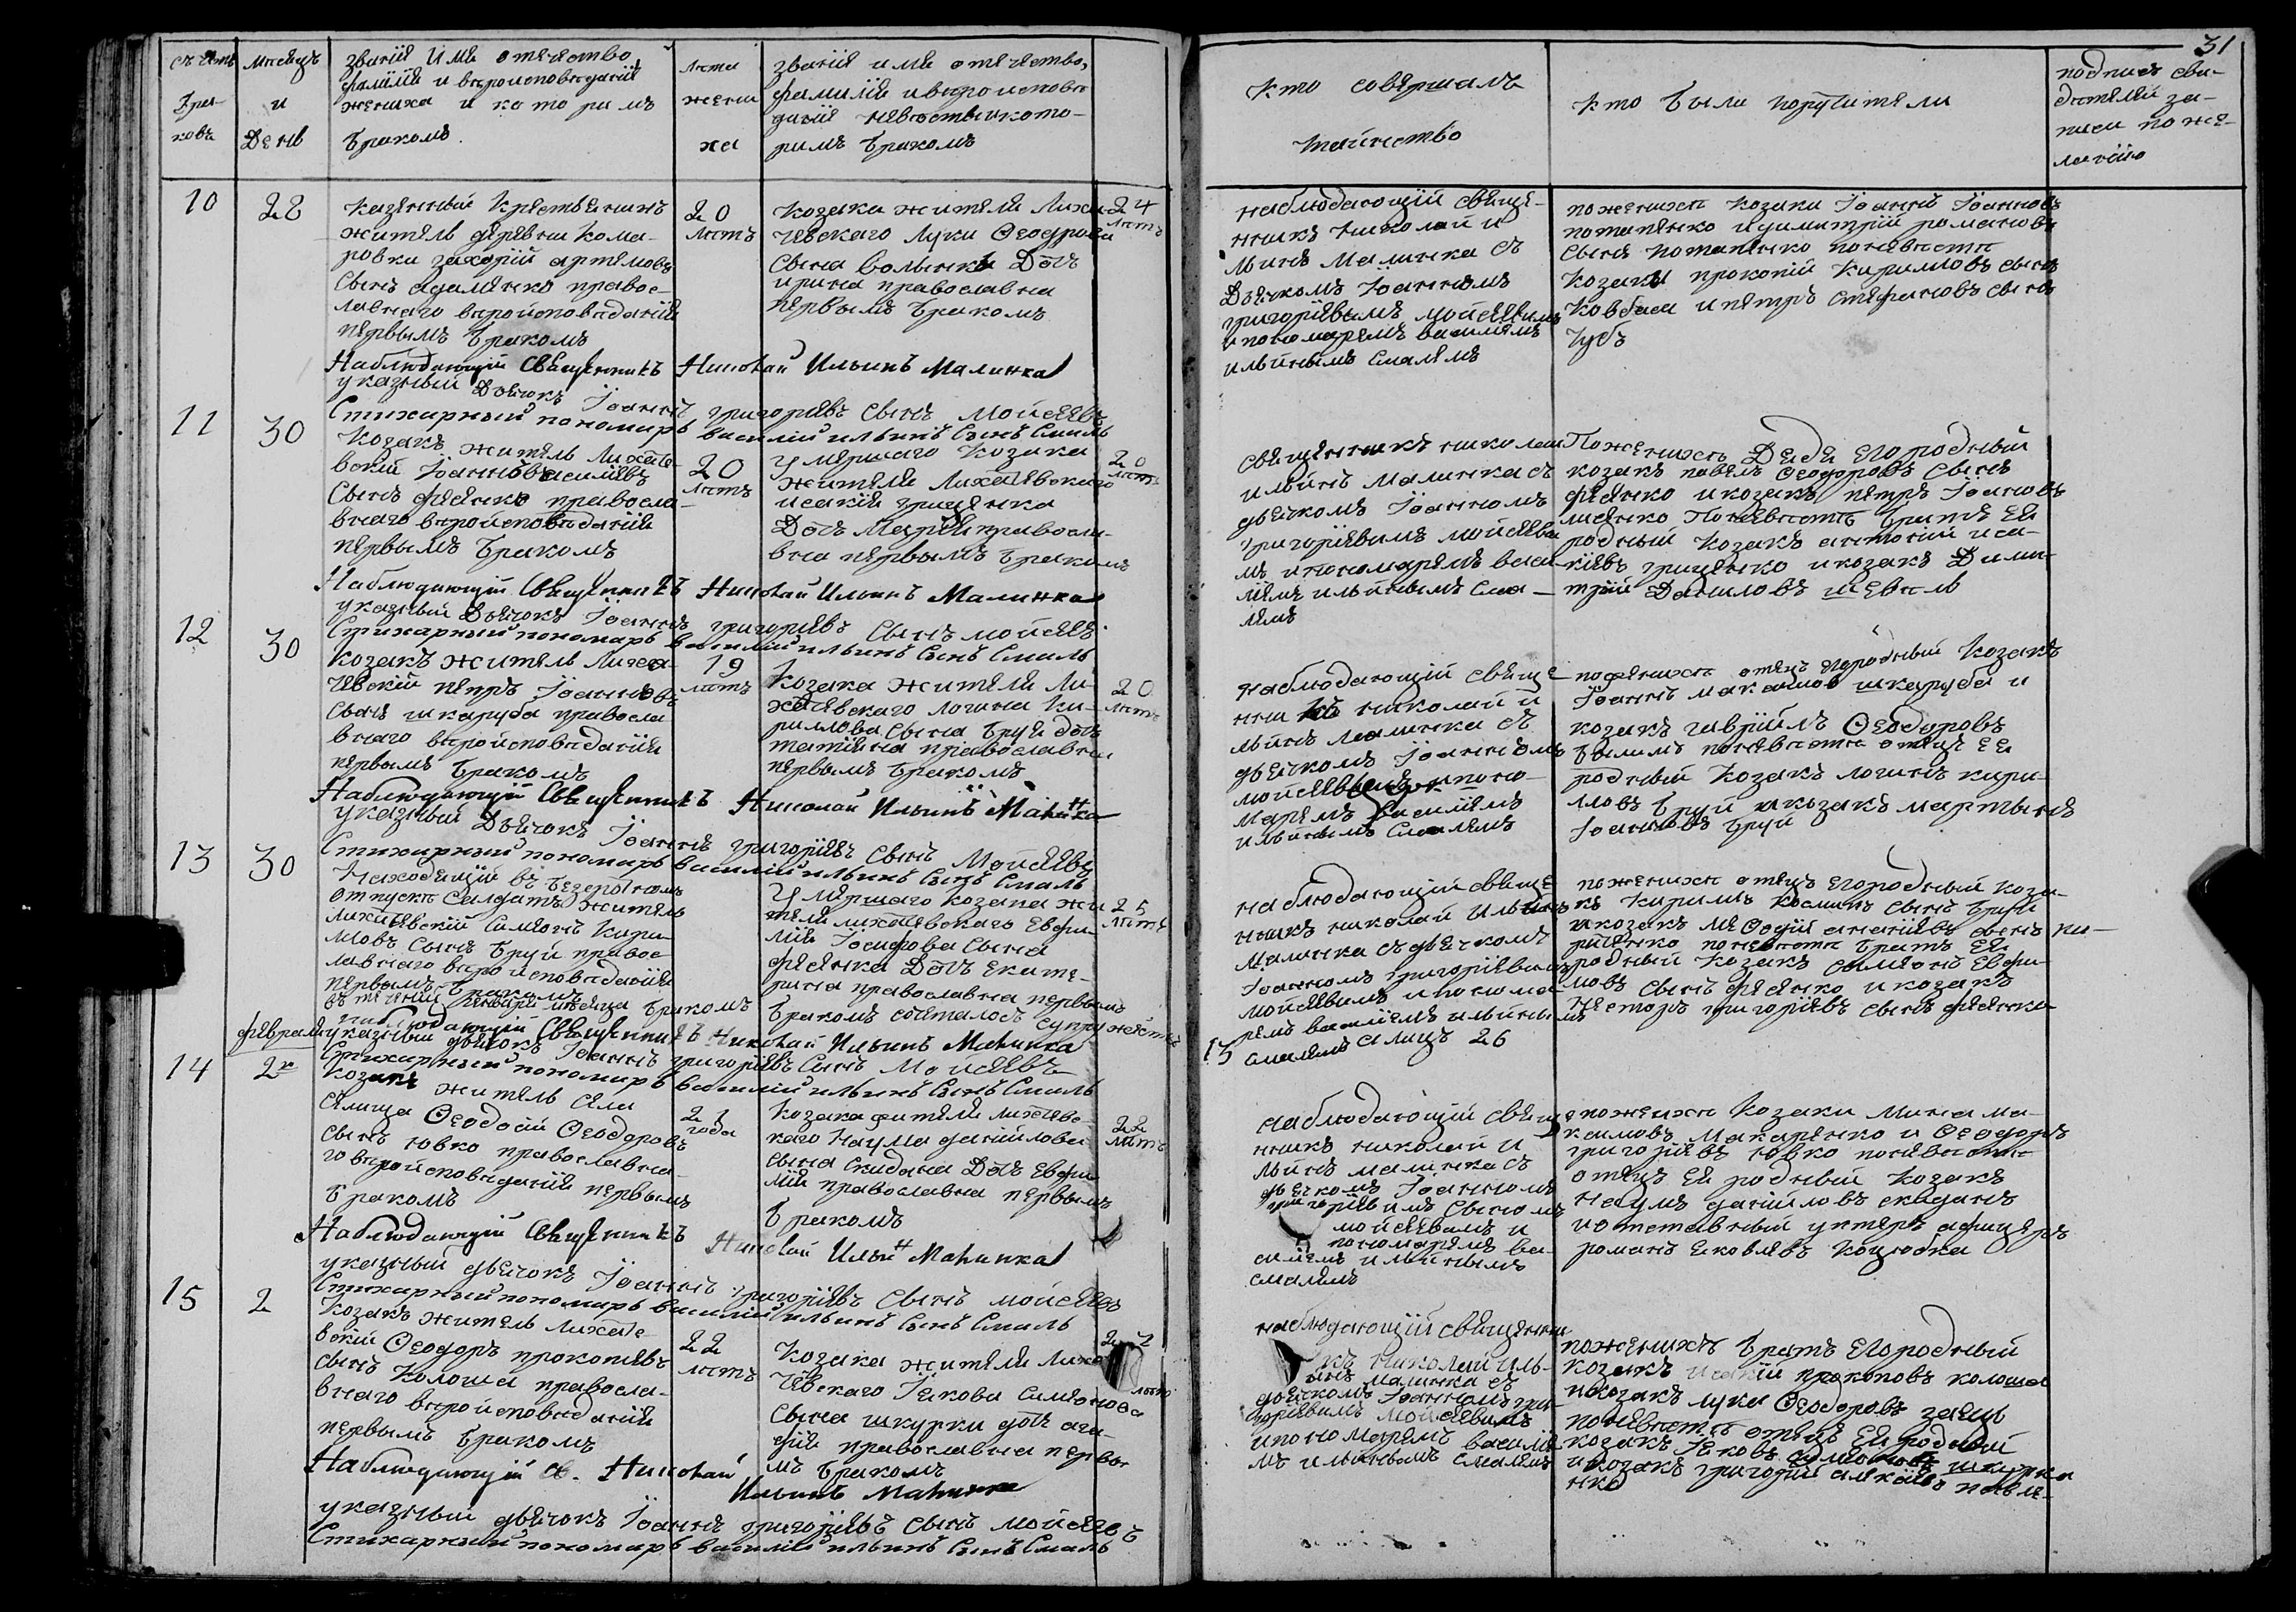 31
счетъ
бра-
ковъ
мѣсяцъ
и
День
званія имя отечество
фамилія и вѣроисповѣданія
жениха и которимъ
бракомъ
лѣта
жени
ха
званія имя отечество,
фамилія и вѣроисповѣ
данія невѣсты и кото-
римъ бракомъ
кто совершалъ
таинство
кто были поручители
подпись сви-
дѣтелей за-
писи по же-
ланію
10
28
казенный крестьянинъ
житель деревни Кома-
ровки захарій артемовъ
сынъ адаменко правос-
лавнаго вѣроисповѣданія
первымъ бракомъ
20
лѣтъ
козака жителя Лиха-
чевскаго Луки Ѳеодорова
сына волынка Дочь
ирина православна
первымъ бракомъ
24
лѣтъ
наблюдающій свяще-
нникъ николай и
льинъ малинка съ
Дьячкомъ Іоанномъ
григоріевымъ мойсеевимъ
и пономаремъ василіемъ
ильинымъ смалемъ
по женихѣ козаки Іоаннъ Іоанновъ
потапенко и димитрій романовъ
сынъ потапенко по невѣстѣ
козаки прокопій Кирилловъ сынъ
Ковбаса и петръ стефановъ сынъ
Чубъ
Наблюдающій Священникъ Николай Ильинъ Малинка
указный Дьячокъ Іоаннъ григоріевъ сынъ Мойсеевъ
Стихарный пономарь василій ильинъ Сынъ Смаль
11
30
Козакъ житель Лихаче-
вскій Іоаннъ василіевъ
сынъ фесенко правосла-
внаго вѣроисповѣданія
первымъ бракомъ
20
лѣтъ
Умершаго козака
жителя Лихачевскаго
исакія гриценка
Дочь Марія правосла-
вна первымъ бракомъ
20
лѣтъ
священникъ николай
ильинъ малинка съ
дьячкомъ Іоанномъ
григоріевимъ мойсееви
мъ и пономаремъ васи-
ліемъ ильинымъ сма-
лемъ
По женихѣ Дядя его родный
козакъ павелъ Ѳеодоровъ сынъ
фесенко и козакъ петръ Іоановъ
лисенко По невѣстѣ братъ ея
родный козакъ антоній иса-
кіевъ гриценко и козакъ Дими-
трій Даниловъ шевель
Наблюдающій Священникъ Николай Ильинъ Малинка
указный Дьячокъ Іоаннъ григоріевъ сынъ мойсеевъ
Стихарный пономарь василій ильинъ Сынъ Смаль
12
30
козакъ житель Лиха-
чевскій петръ Іоанновъ
сынъ шкаруба правосла
внаго вѣроисповѣданія
первымъ бракомъ
19
лѣтъ
козака жителя Ли-
хачевскаго логина Ки-
риллова сына бруя дочь
татіана православна
первымъ бракомъ
20
лѣтъ
наблюдающій свяще-
нникъ николай и
льинъ малинка съ
дьячкомъ Іоанномъ
мойсеевымъ и поно-
маремъ василіемъ
ильинымъ смалемъ
по женихѣ отецъ его родный козакъ
Іоаннъ макаимов шкаруба и
козакъ гавріилъ Ѳеодоровъ
по невѣстѣ отецъ ея
родный козакъ логинъ кири-
ловъ бруй и козакъ мартынъ
Іоанновъ бруй
Наблюдающій Священникъ Николай Ильинъ Малинка
указный Дьячокъ Іоаннъ григоріевъ сынъ Мойсеевъ
Стихарный пономарь василій ильинъ Сынъ Смаль
13
30
Находящій въ безсрочномъ
отпускѣ Салдатъ житель
лихачевскій Симеонъ Кири-
ловъ сынъ Бруй правос-
лавнаго вѣроисповѣданія
первымъ бракомъ
Умершаго козака жи
теля лихачевскаго Евфи-
мія Іосифова сына
фесенка Дочь екате-
рина православна первымъ
бракомъ
25
лѣтъ
наблюдающій свяще
нникъ николай Ильинъ
малинка съ дьячкомъ
Іоанномъ григоріевимъ
мойсеевымъ и понома-
ремъ василіемъ ильины
смалемъ
по женихѣ отецъ его родный коза-
къ Кирилъ Космин сынъ бруй
и козакъ меѳодій ананіевъ сынъ ки-
риленко по невѣстѣ братъ ея
родный козакъ симеонъ евфи-
мовъ сынъ фесенко и козакъ
несторъ григоріевъ сынъ фесенко
въ теченіи генваря мѣсяца бракомъ сочеталось супружествъ
13 а лицъ 26
наблюдающій Священникъ Николай Ильинъ Малинка
указный дьячокъ Іоаннъ григоріевъ Сынъ Мойсеевъ
Стихарный пономарь василій ильинъ Сынъ Смаль
февраля
14
2го
Козакъ житель села
селища Ѳеодосій Ѳеодоровъ
сынъ ювко православна
го вѣроисповѣданія первымъ
бракомъ
21
года
козака жителя лихачевс
каго Наума даніилова
сына скидана Дочь Евфи
мія православна первымъ
бракомъ
22
лѣтъ
наблюдающій свяще
нникъ николай и
льинъ малинка съ
дьячкомъ Іоанномъ
григоріевимъ сыномъ
мойсеевымъ и
пономаремъ ва-
силіемъ ильинымъ
смалемъ
по женихѣ козаки мина ма-
ксимовъ макаренко и Ѳеодоръ
григоріевъ ювко по невѣстѣ
отецъ ея родный козакъ
наумъ даніиловъ скиданъ
и отставный унтеръ афицеръ
романъ яковлевъ коцюбка
Наблюдающій Священникъ Николай Ильин Малинка
указный дьячокъ Іоаннъ григоріевъ сынъ мойсеевъ
Стихарный пономарь василій ильинъ Сынъ Смаль
15
2
козакъ житель лихаче-
вскій Ѳеодоръ прокопіевъ
сынъ Колоша правосла-
внаго вѣроисповѣданія
первымъ бракомъ
22
лѣтъ
Козака жителя Лиха-
чевскаго Іакова Симеонова
сына шкурки дочь ага-
фія православна первы
мъ бракомъ
наблюдающій священни
къ николай Иль-
инъ малинка съ
дьячкомъ Іоанномъ гри-
горіевимъ мойсеевимъ
и пономаремъ василіе
мъ ильинымъ смалемъ
по женихѣ братъ его родный
козакъ исакій прокоповъ колоша
и козакъ лука Ѳеодоровъ заецъ
по невѣстѣ отецъ ея родный
козакъ Іаковъ симеоновъ шкурка
и козакъ григорій алексѣевъ павле-
нко
Наблюдающій св. Николай Ильинъ Малинка
указный дьячокъ Іоаннъ григоріевъ сынъ мойсеевъ
Стихарный пономарь василій ильинъ Сынъ Смаль